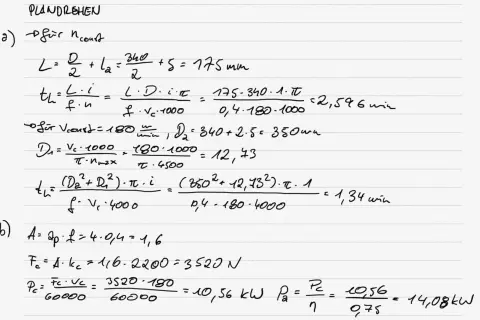 PLANDREHEN
a) → für n_const
L = D/2 + la = 340/2 + 5 = 175 mm
th = L · i / f · n = L · D · i · π / f · vc · 1000 = 175 · 340 · 1 · π / 0,4 · 180 · 1000 = 2,596 min
→ für vconst = 180 m/min, D2 = 340 + 2 · 5 = 350 mm
D1 = vc · 1000 / π · nmax = 180 · 1000 / π · 4500 = 12,73
th = (D2² + D1²) · π · i / f · vc · 4000 = (350² + 12,73²) · π · 1 / 0,4 · 180 · 4000 = 1,34 min
b) A = ap · f = 4 · 0,4 = 1,6
Fc = A · kc = 1,6 · 2200 = 3520 N
Pc = Fc · vc / 60000 = 3520 · 180 / 60000 = 10,56 kW Pa = Pc / η = 10,56 / 0,75 = 14,08 kW